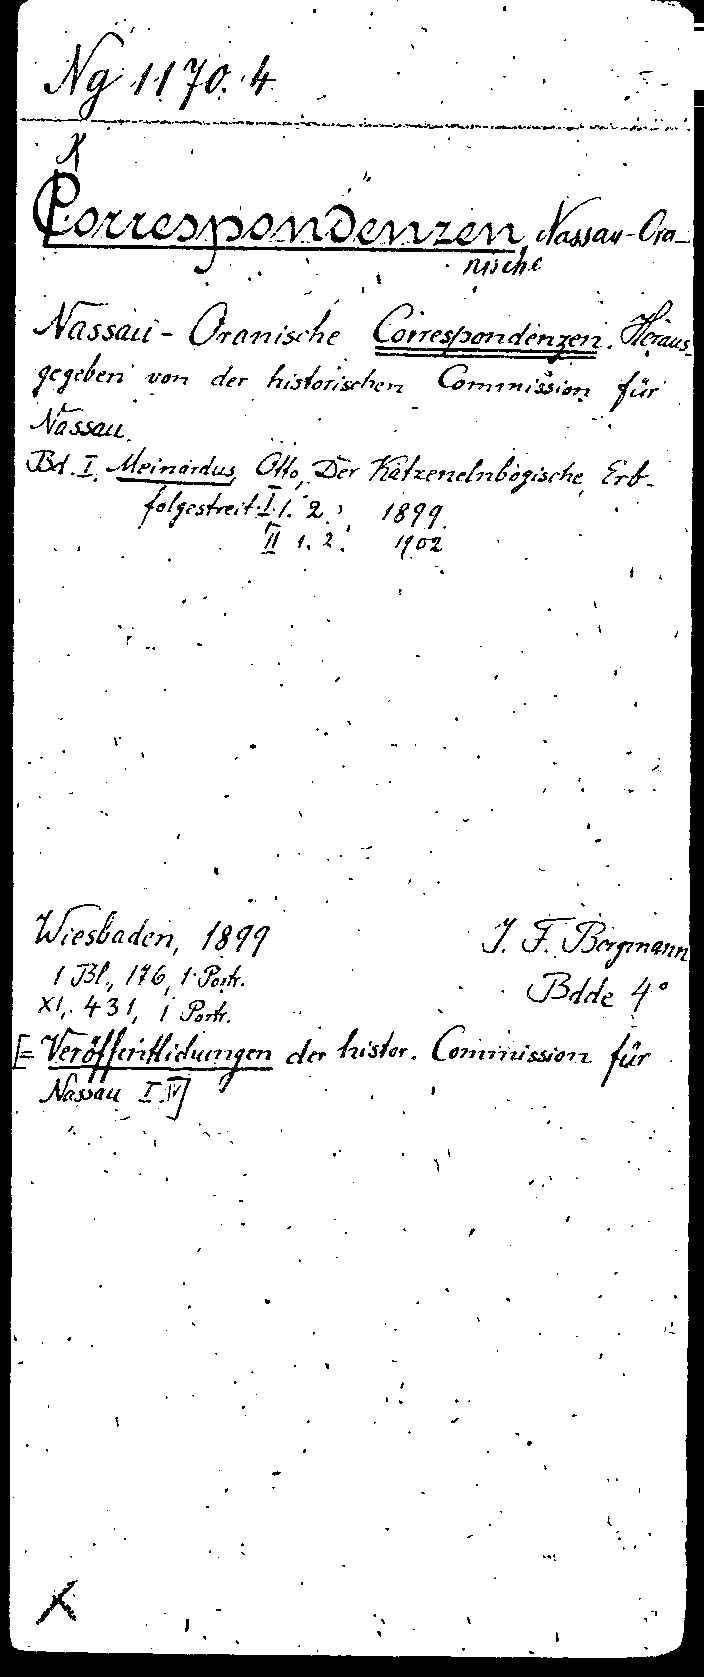 Ng 1170.4
K
Correspondenzen, Nassau-Ora-
nische
Nassau-Oranische Correspondenzen. Heraus-
gegeben von der historischen Commission für
Nassau.
Bd. I. Meinardus, Otto, Der Katzenelnbogische Erb-
folgestreit. I 1. 2. 1899.
II 1. 2. 1902
Wiesbaden, 1899 J. F. Bergmann
1 Bl., 176, 1 Portr. Bdde 4°
XI, 431, 1 Portr.
[= Veröffentlichungen der histor. Commission für
Nassau I. IV]